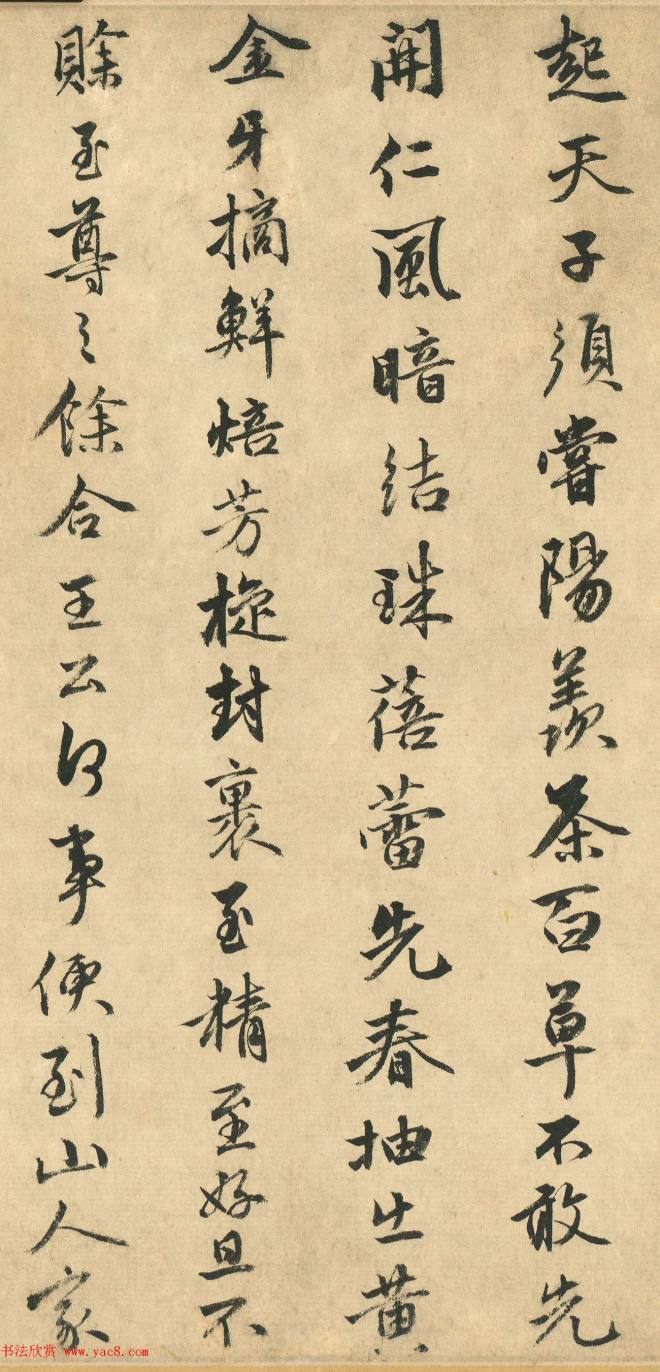 起天子須嘗陽羨茶百草不敢先
開仁風暗結珠蓓蕾先春抽出黃
金牙摘鮮焙芳旋封裹至精至好且不
賒至尊之餘合王公何事便到山人家
书法欣赏 www.yac8.com